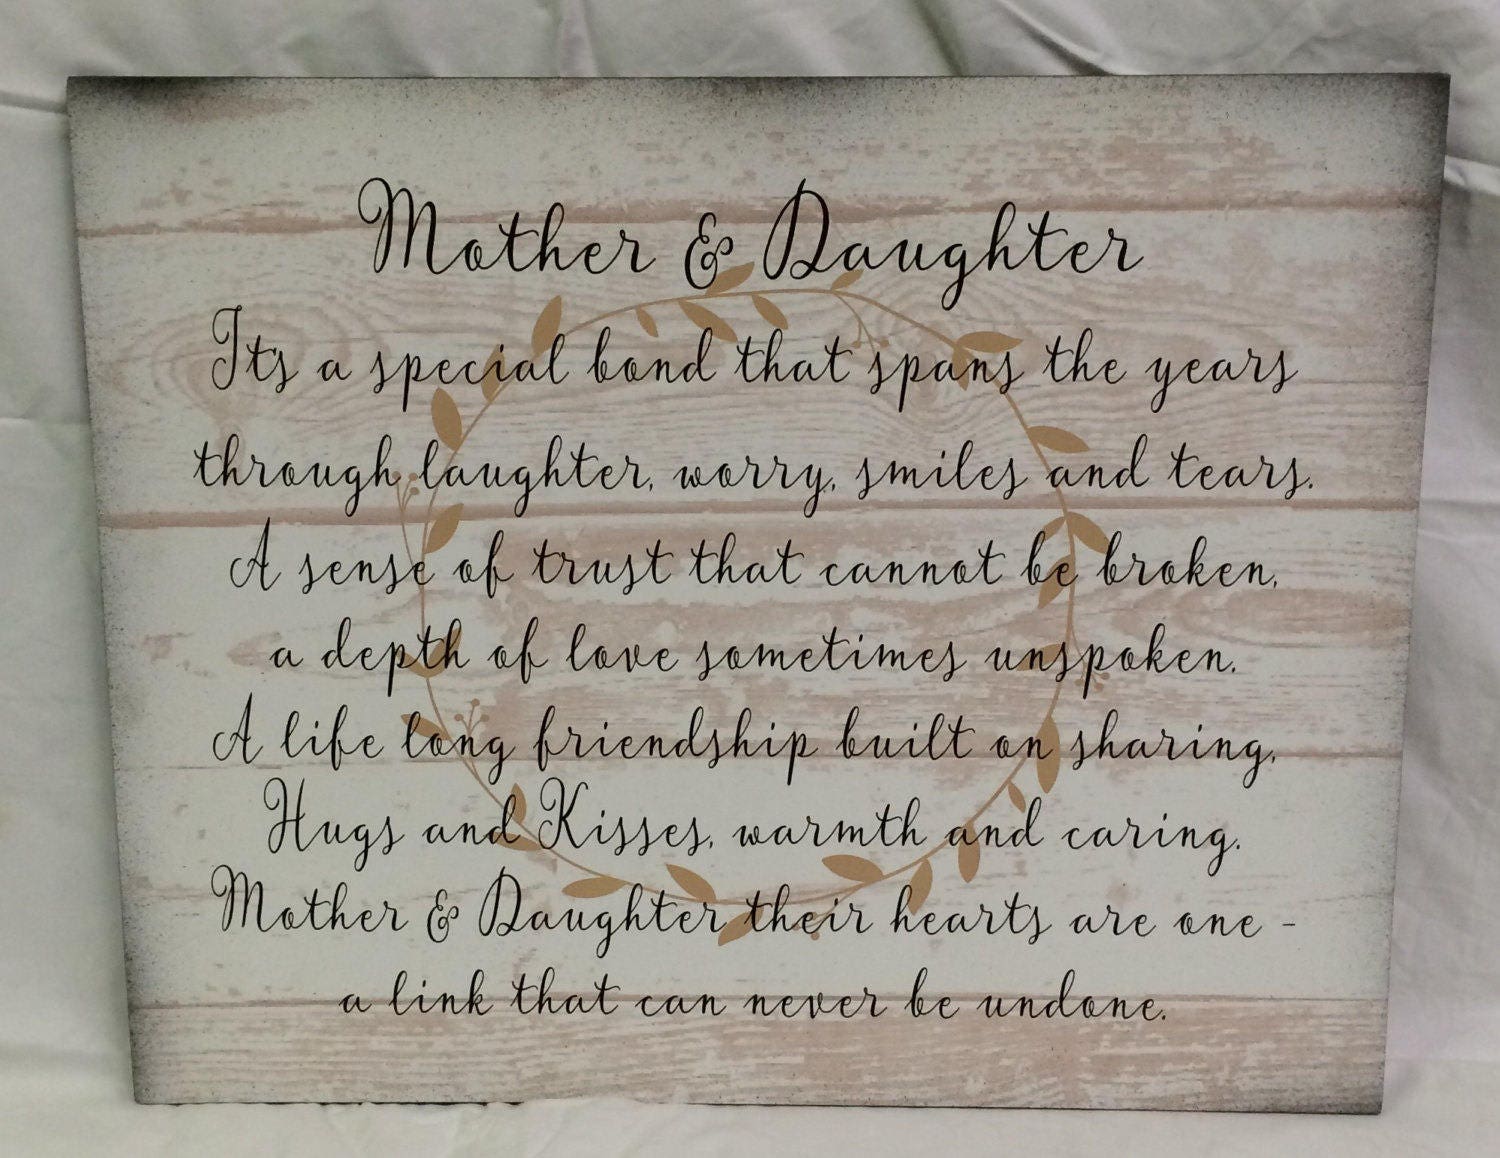 Mother & Daughter
It's a special bond that spans the years
through laughter, worry, smiles and tears.
A sense of trust that cannot be broken,
a depth of love sometimes unspoken.
A life long friendship built on sharing,
Hugs and Kisses, warmth and caring.
Mother & Daughter their hearts are one -
a link that can never be undone.